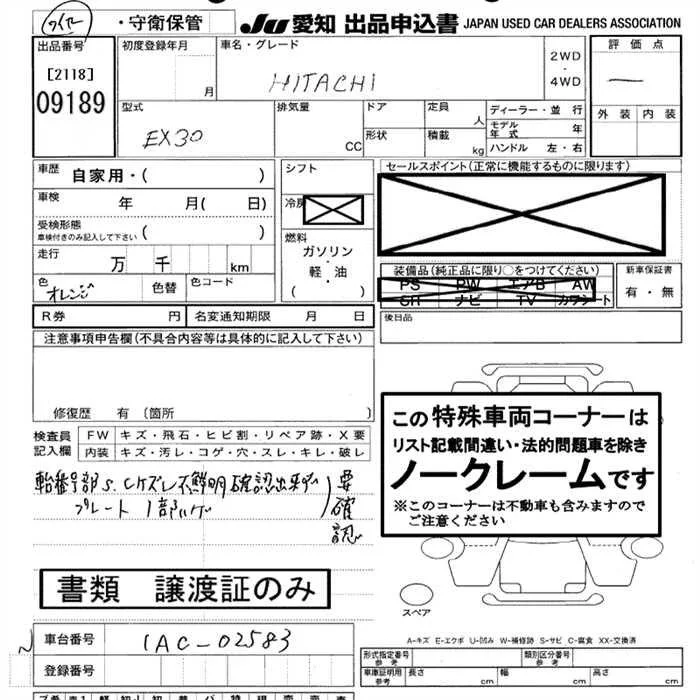 ・守衛保管
JU 愛知 出品申込書 JAPAN USED CAR DEALERS ASSOCIATION
出品番号
[2118]
09189
初度登録年月
月
車名・グレード
HITACHI
2WD
・
4WD
評価点
外装 内装
型式
EX30
排気量
CC
ドア
形状
定員
人
積載
kg
ディーラー・並行
モデル年式
年
ハンドル 左・右
車歴
自家用・( )
車検
年 月( 日)
受検形態
車検付きのみ記入して下さい ( )
走行
万 千 km
色
オレンジ
色替
色コード
シフト
冷房
燃料
ガソリン
・
軽・油
( )
セールスポイント(正常に機能するものに限ります)
装備品(純正品に限り○をつけてください)
PS PW エアB AW
SR ナビ TV カワシート
新車保証書
有・無
R券 円
名変通知期限 月 日
後日品
注意事項申告欄(不具合内容等は具体的に記入して下さい)
修復歴 有〔箇所 〕
検査員
記入欄
FW キズ・飛石・ヒビ割・リペア跡・X要
内装 キズ・汚レ・コゲ・穴・スレ・キレ・破レ
プレート1部ハゲ
要確認
この特殊車両コーナーは
リスト記載間違い・法的問題車を除き
ノークレームです
※このコーナーは不動車も含みますので
ご注意ください
書類 譲渡証のみ
スペア
A-キズ E-エクボ U-凹み W-補修跡 S-サビ C-腐食 XX-交換済
車台番号
1AC-02583
登録番号
形式指定番号
参考
類別区分番号
参考
車庫証明用
参考
長さ cm 幅 cm 高さ cm